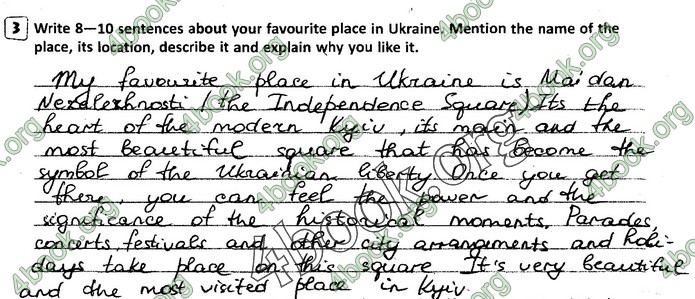 3 Write 8—10 sentences about your favourite place in Ukraine. Mention the name of the
place, its location, describe it and explain why you like it.
My favourite place in Ukraine is Maidan
Nezalezhnosti (the Independence Square). Its the
heart of the modern Kyiv, its main and the
most beautiful square that has become the
symbol of the Ukrainian liberty. Once you get
there, you can feel the power and the
significance of the historical moments. Parades,
concerts, festivals and other city arrangements and holi-
days take place on this square. It's very beautiful
and the most visited place in Kyiv.
4book.org